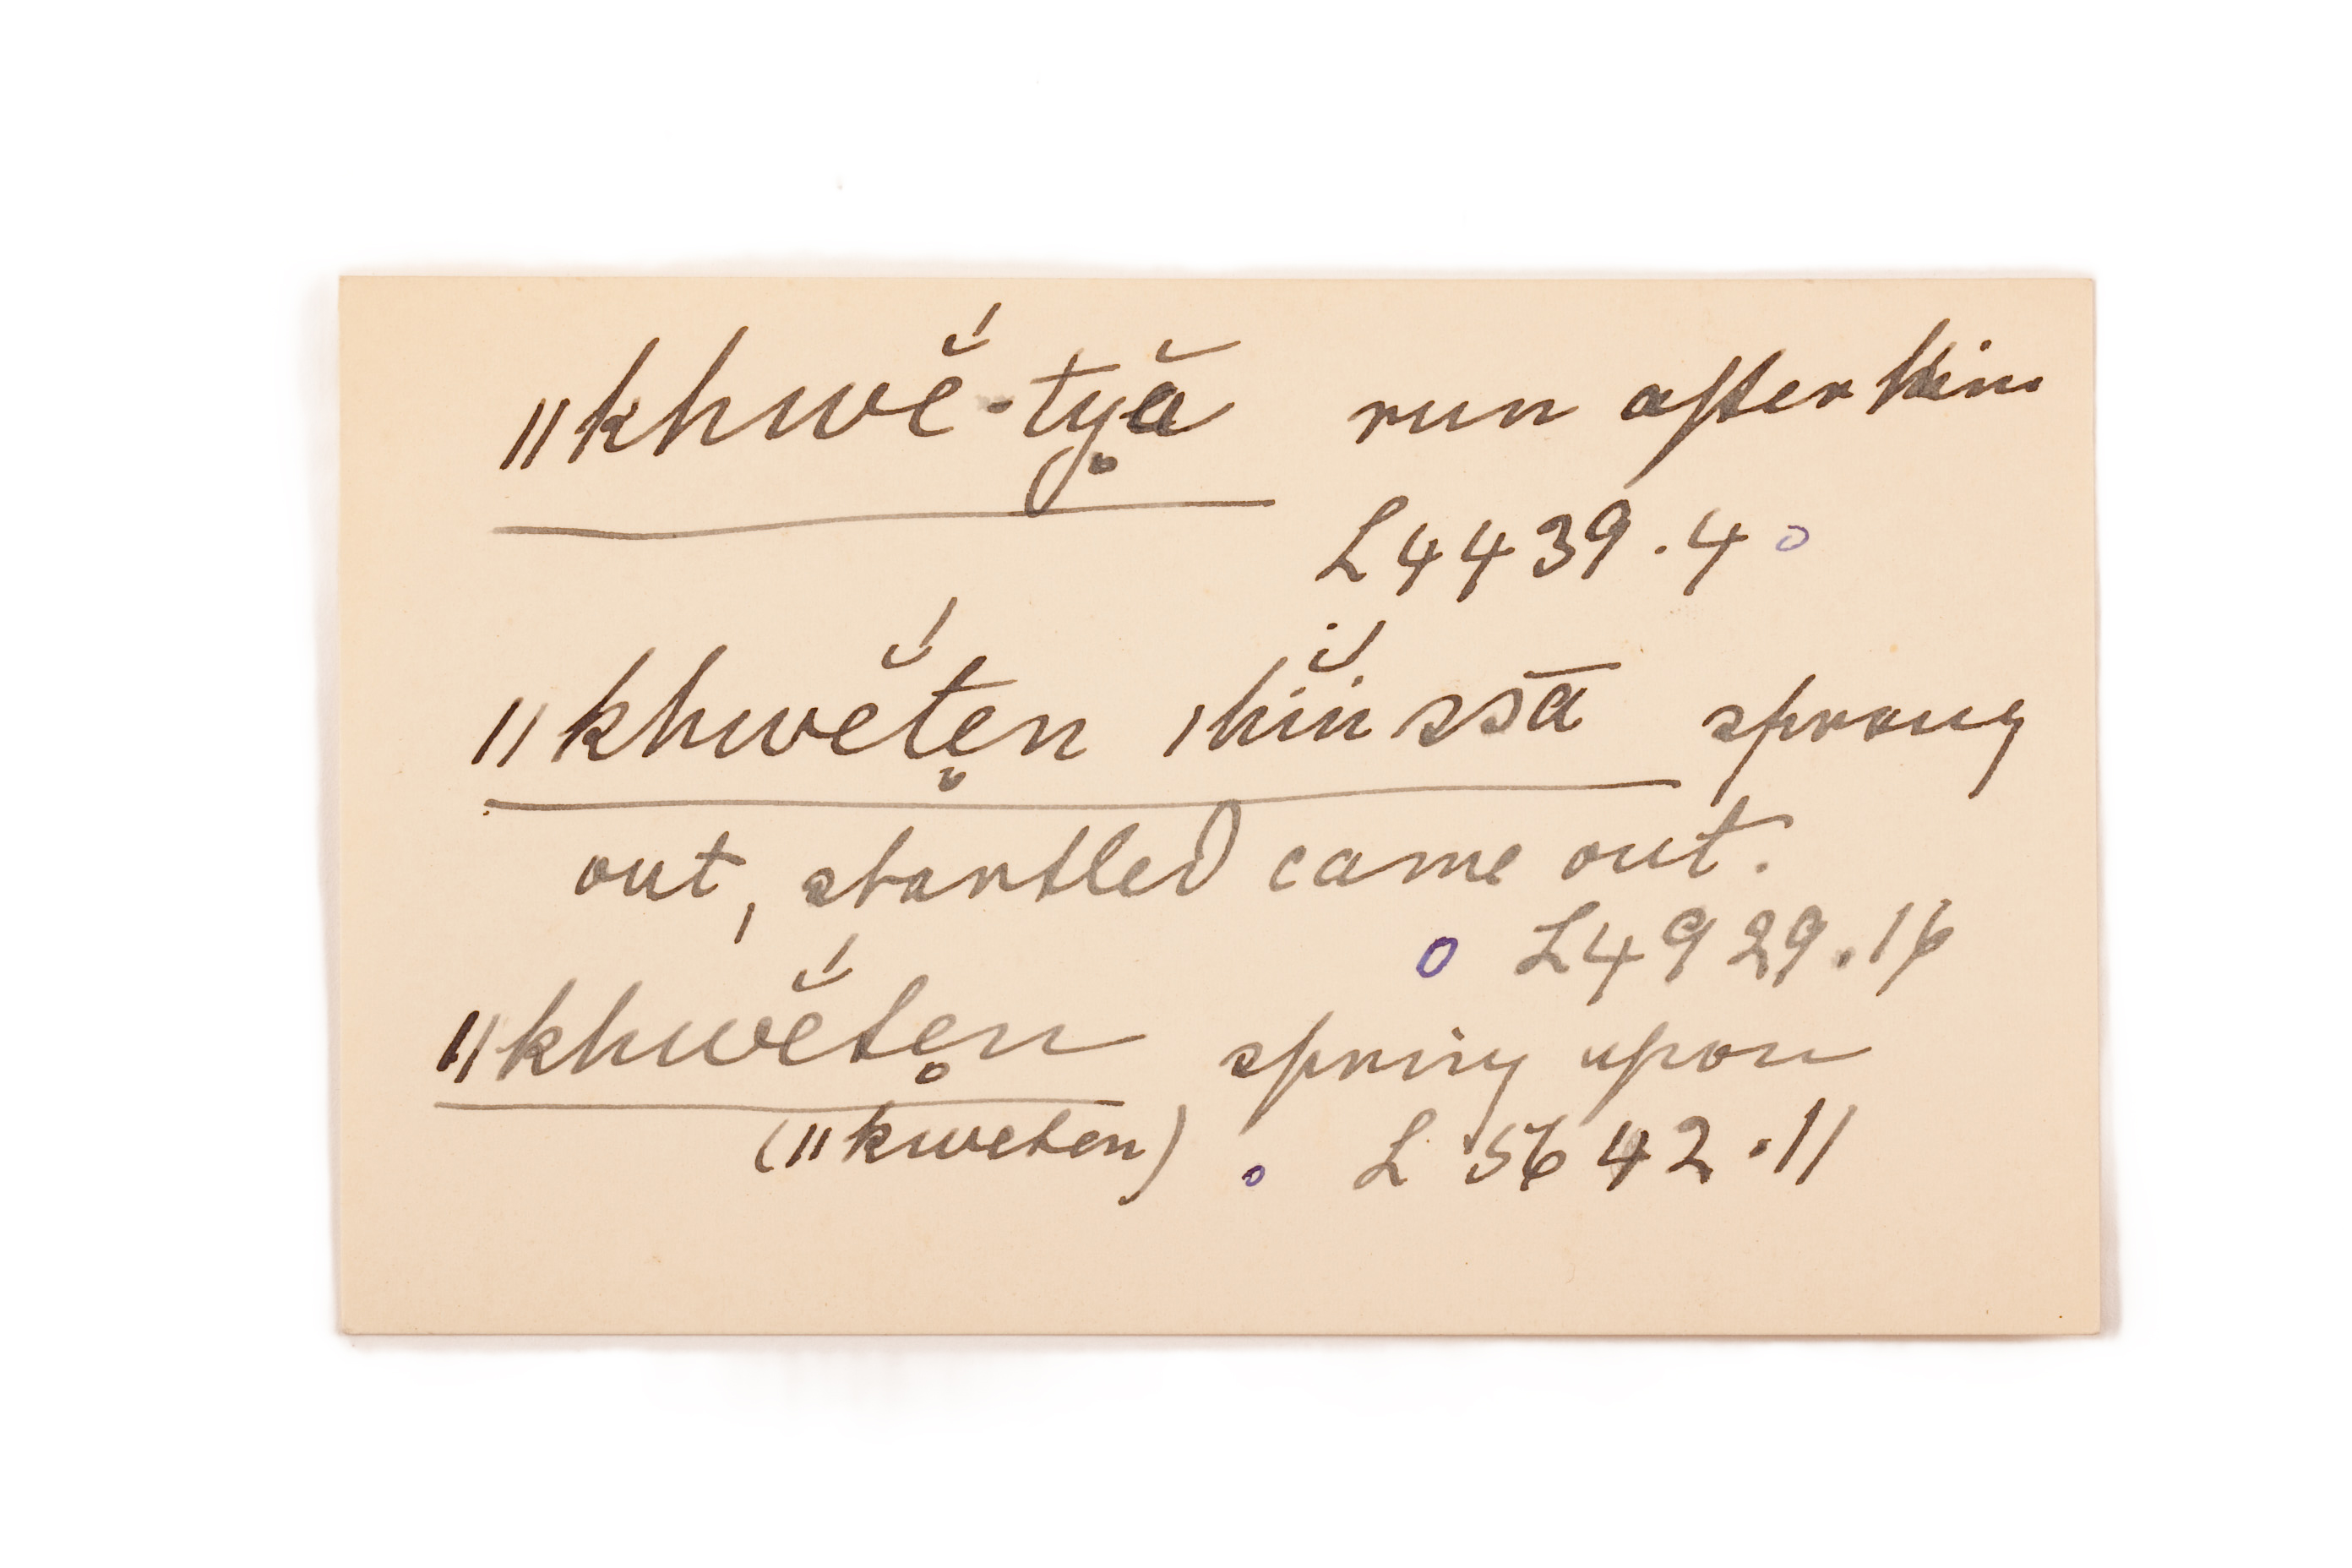 ǁkhwĕ́-tyḁ̆ run after him
L 4439.4 o
ǁkhwĕ́te̥n ǀhĭ́n ssā sprang
out, startled came out.
o L 4929.16
ǁkhwĕ́te̥n spring upon
(ǁkweten) o L 5642.11